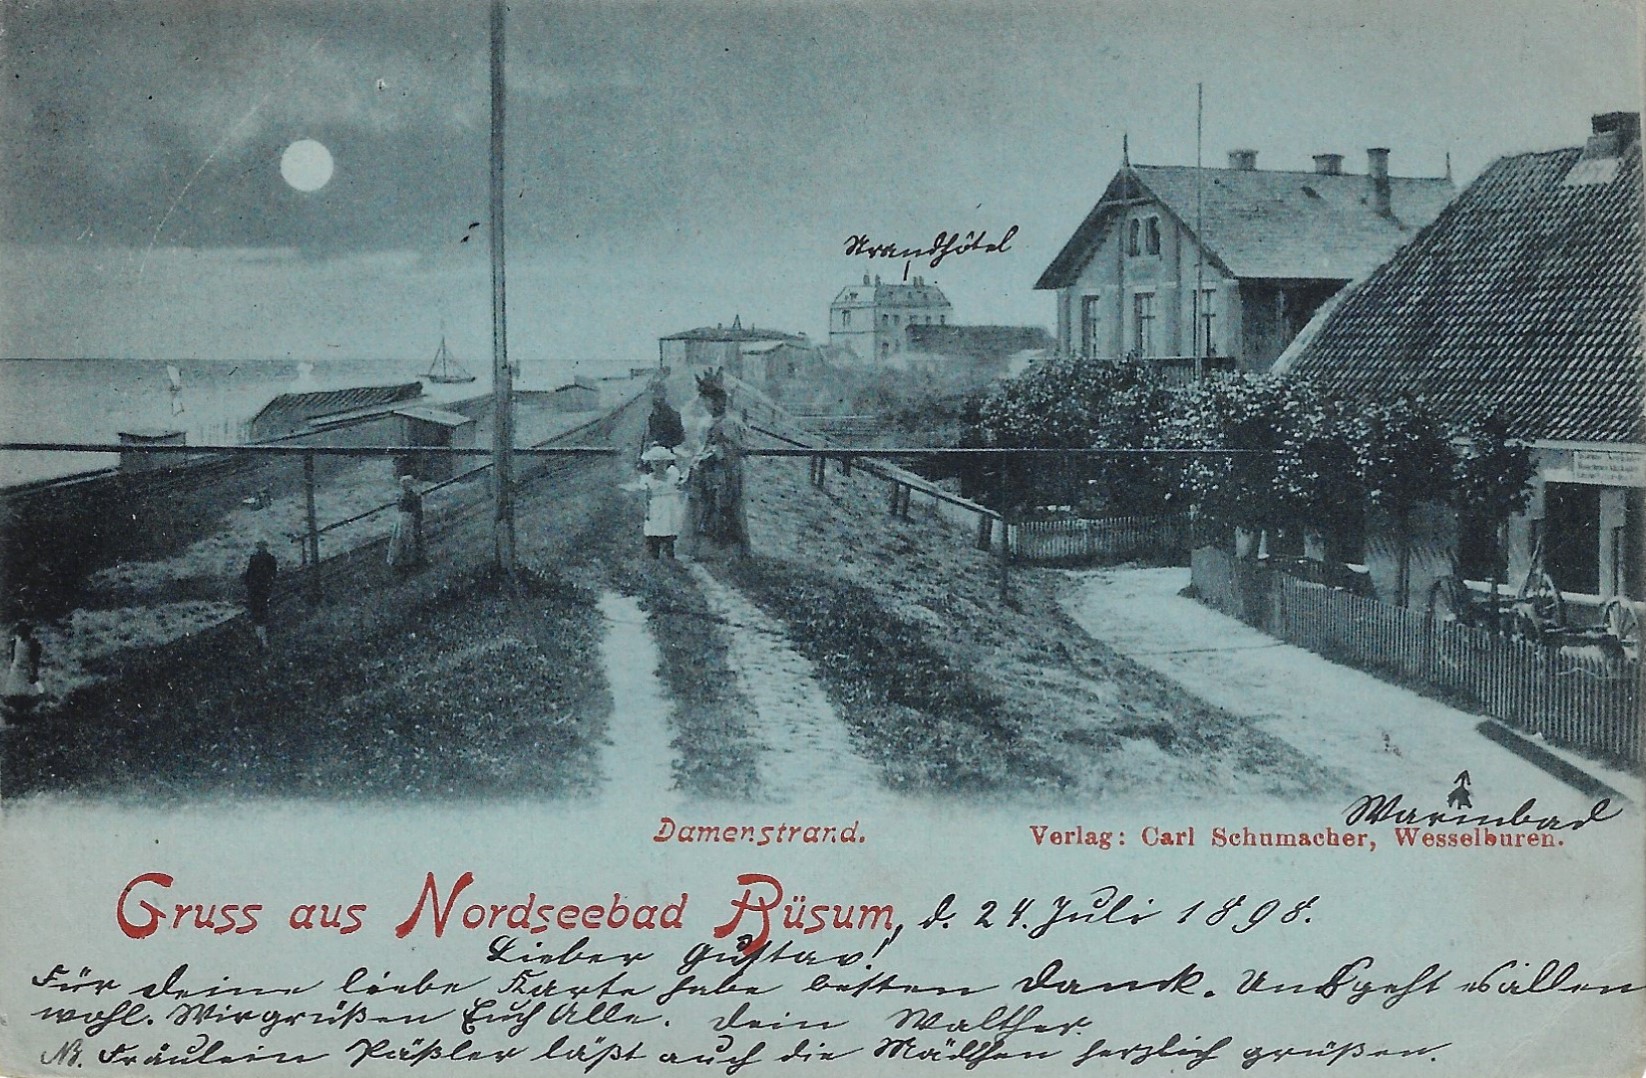 Strandhôtel
Warmbad
Damenstrand.
Verlag: Carl Schumacher, Wesselburen.
Gruss aus Nordseebad Büsum, d. 24. Juli 1898.
Lieber Gustav!
Für deine liebe Karte habe besten Danck. Uns geht es allen
wohl. Wir grüßen Euch Alle. Dein Walther.
NB. Fräulein Päßler läßt auch die Mädchen herzlich grüßen.